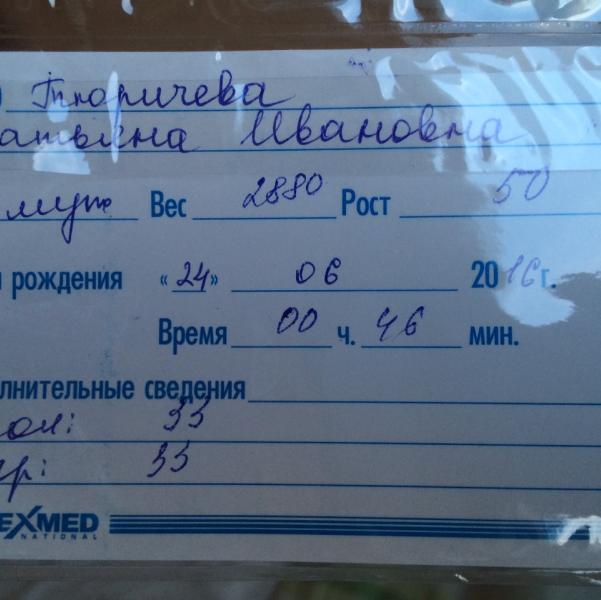 Тюричева
атьяна Ивановна
муж Вес 2880 Рост 50
рождения «24» 06 2016 г.
Время 00 ч. 46 мин.
лнительные сведения
ол: 33
гр: 33
EXMED
NATIONAL